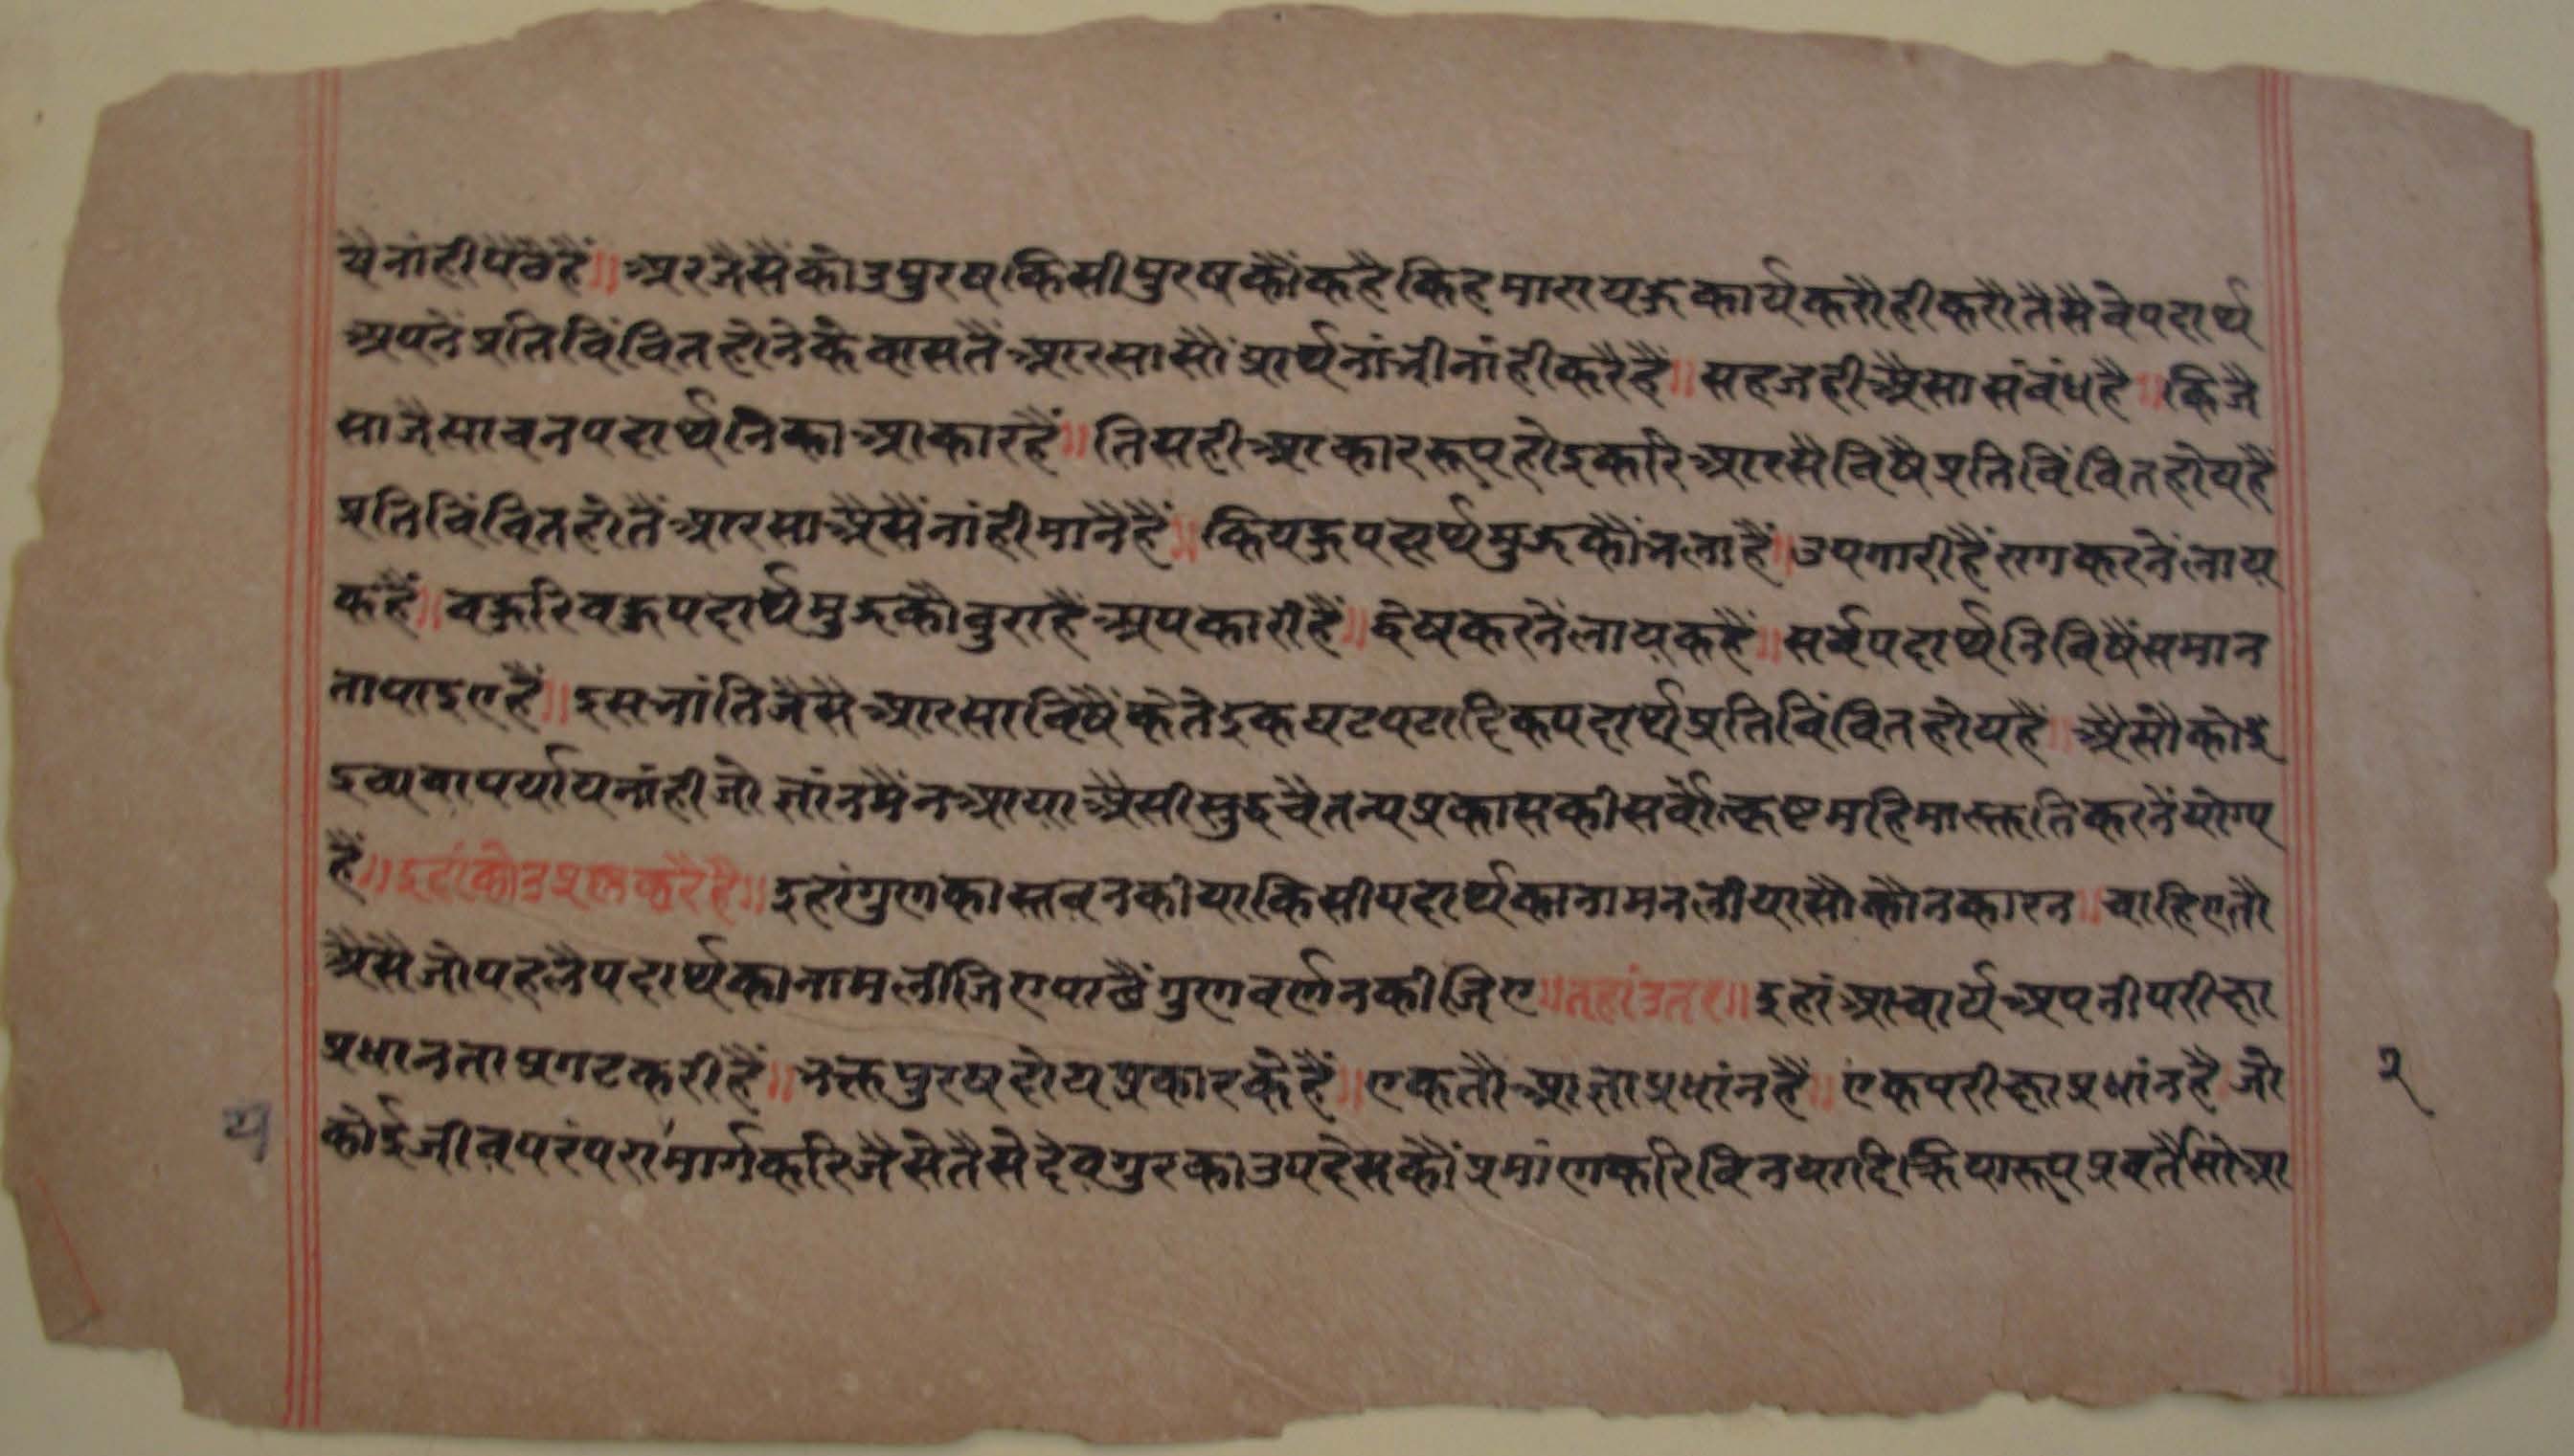 यै नांही पैठै हैं ॥ अर जैसैं कोउ पुरष किसी पुरष कौं कहै कि हमारा यहु कार्य करौ ही करौ तैसै वे पदार्थ
अपनें प्रतिविंवित होने के वासतैं आरसा सौं प्रार्थनां भी नांही करै हैं ॥ सहज ही अैसा संवंध है ॥ कि जै
सा जैसा वन पदार्थनि का आकार हैं ॥ तिस ही आकार रूप होइ करि आरसै विषै प्रतिविंवित होय हैं
प्रतिविंवित होतैं आरसा अैसैं नांही मानै हैं ॥ कि यहु पदार्थ मुझ कौं भला हैं ॥ उपगारी हैं राग करनें लाय
क हैं ॥ वहुरि वहु पदार्थ मुझ कौ वुरा हैं अपकारी हैं ॥ द्वेष करनें लायक हैं ॥ सर्व पदार्थनि विषैं समान
ता पाइए हैं ॥ इस भांति जैसै आरसा विषैं केतेइक घट पटादिक पदार्थ प्रतिविंवित होय हैं ॥ अैसौ कोइ
द्रव्य वा पर्याय नांही जो ज्ञांन मैं न आया अैसी सुद्ध चैतन्य प्रकास की सर्वोत्कृष्ट महिमा स्तुति करनें योग्य
हैं ॥ इहां कोउ प्रश्न करै है ॥ इहां गुण का स्तवन कीया किसी पदार्थ का नाम न लीया सौ कौन कारन ॥ चाहिए तौ
अैसै जो पहलै पदार्थ का नाम लीजिए पाछैं गुण वर्णन कीजिए ॥ तहां उतर ॥ इहां आचार्य अपनी परीक्षा
प्रधानता प्रगट करी हैं ॥ भक्त पुरष दोय प्रकार के हैं ॥ एक तौ आज्ञा प्रधांन हैं ॥ एक परीक्षा प्रधांन है जो
कोई जीव परंपरा मार्ग करि जैसे तैसे देव गुर का उपदेस कौं प्रमांण करि विनयादि क्रिया रूप प्रवर्तै सो आ
२